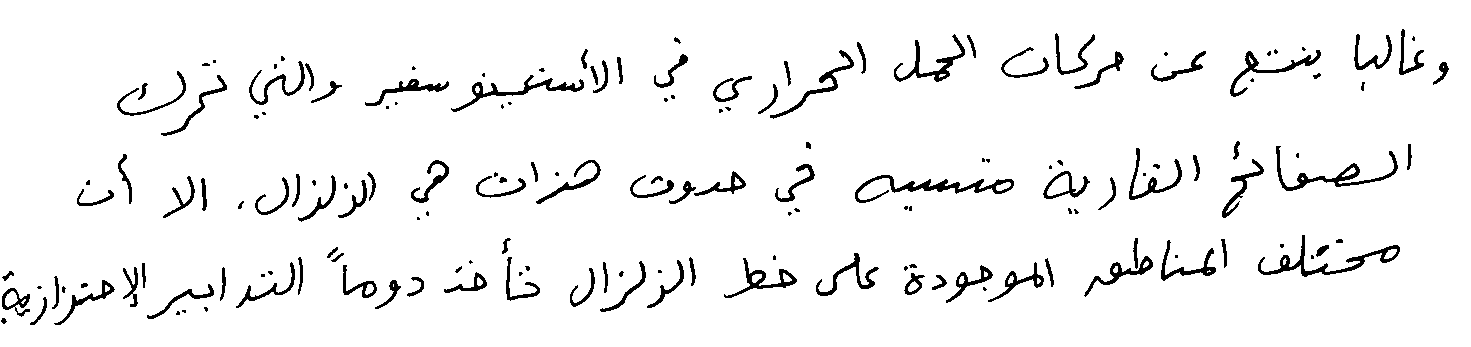 وغالبا ينتج عن حركات الحمل الحراري في الأستينوسفير والتي تحرك
الصفائح القارية متسببه في حدوث هزات هي الزلزال. الا أن
مختلف المناطق الموجودة على خط الزلزال تأخذ دوماً التدابير الإحترازية